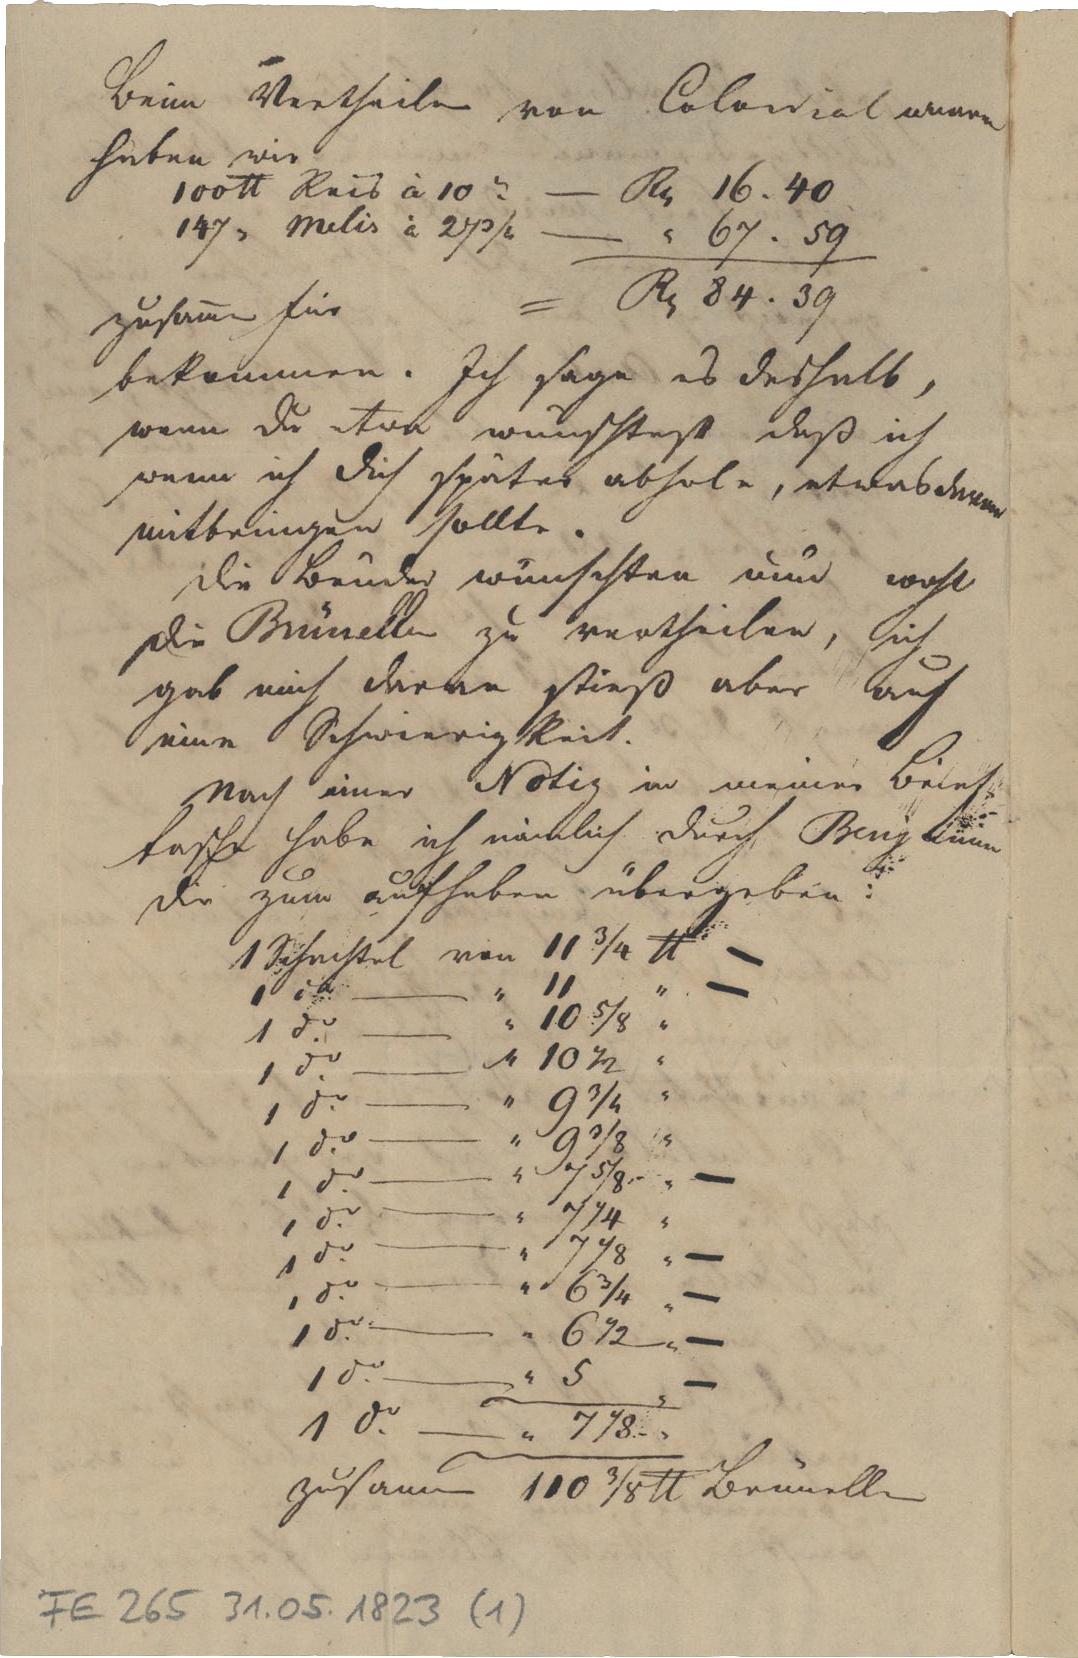 Beim Vertheilen von Colonial waaren
haben wir
100 ℔ Reis à 10 — Rh 16. 40
147 " Melis à 27 3/4 — " 67. 59
zusamen für = Rh 84. 39
bekommen. Ich sage es deshalb,
wenn Du etwa wünschtest daß ich
wenn ich Dich später abhole, etwas davon
mitbringen sollte.
Die Brüder wünschten nun wohl
die Brünellen zu vertheilen, ich
gab mich daran stieß aber auf
eine Schwierigkeit.
Nach einer Notiz in meiner Brief-
tasche habe ich nämlich durch Benjamin
Dir zum aufheben übergeben:
1 Schachtel von 11 3/4 ℔ —
1 do — " 11 " —
1 do — " 10 5/8 "
1 do — " 10 1/2 "
1 do — " 9 3/4 "
1 do — " 9 3/8 "
1 do — " 7 5/8 " —
1 do — " 7 1/4 "
1 do — " 7 1/8 " —
1 do — " 6 3/4 " —
1 do — " 6 1/2 " —
1 do — " 5 " —
1 do — " 7 1/8 "
zusamen 110 3/8 ℔ Brünellen
FE 265 31.05.1823 (1)